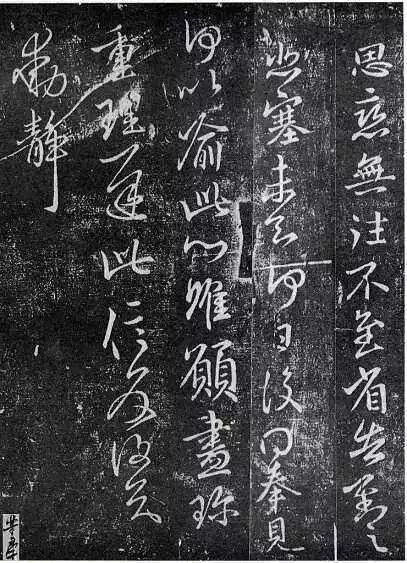 思戀無往不至省告對之
悲塞未知何日復得奉見
何以喻此心惟願盡珍
重理遲此信反復知
動靜